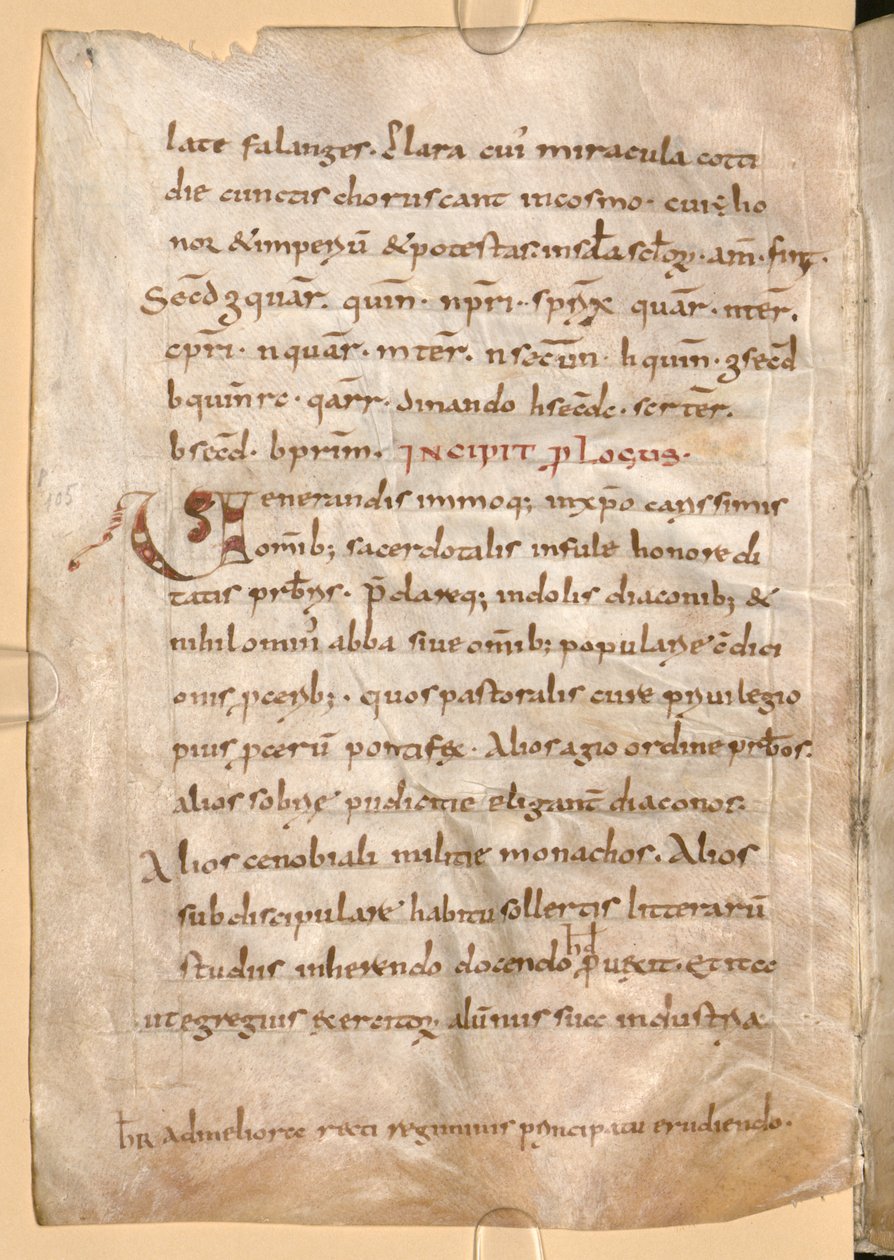 late falanges. Clara cui' miracula cotti
die cunctis choruscant incosmo. cui ę ho
nor & imperiū & potestas. in scła scłorꝝ. am̄. finit.
Secd̄ ʒ quār. quin̄. n pr̄i. sp̄rix quār. n ter̄.
c pr̄i. n quār. m ter̄. n secūn. h quin̄. ʒ secd̄
b quin̄ rc. qār r. dinando h secd̄ c. scr ter̄.
b secd̄. b prim̄. INCIPIT PLOGUS.
Uenerandis immoq; inxp̄o carissimis
om̄ib; sacerdotalis infule honore di
tatis prb̄ris. p̄clareq; indolis diaconib; &
nihilomin' abba siue om̄ib; popularie c̄dici
onis ꝓcerib;. quos pastoralis cure priuilegio
pius ꝓcerū pontifex. Alios agio ordine prb̄os.
alios sobrie pudicitie eligant̄ diaconos.
Alios cenobiali militie monachos. Alios
subdiscipulare habitu sollertis litterarū
studiis inherendo docendo hd̄ ꝓuexit. Et ita
ut egregius exercitorꝝ alūnus sua industria
hr̄ ad meliora recti regiminis principatu erudiendo.